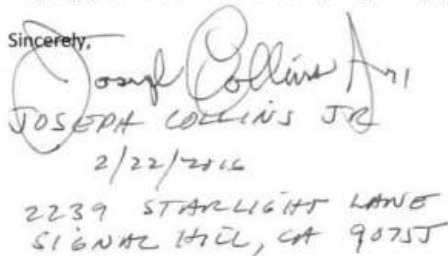 Sincerely,
Joseph Collins Jr
JOSEPH COLLINS JR
2/22/2016
2239 STARLIGHT LANE
SIGNAL HILL, CA 90755